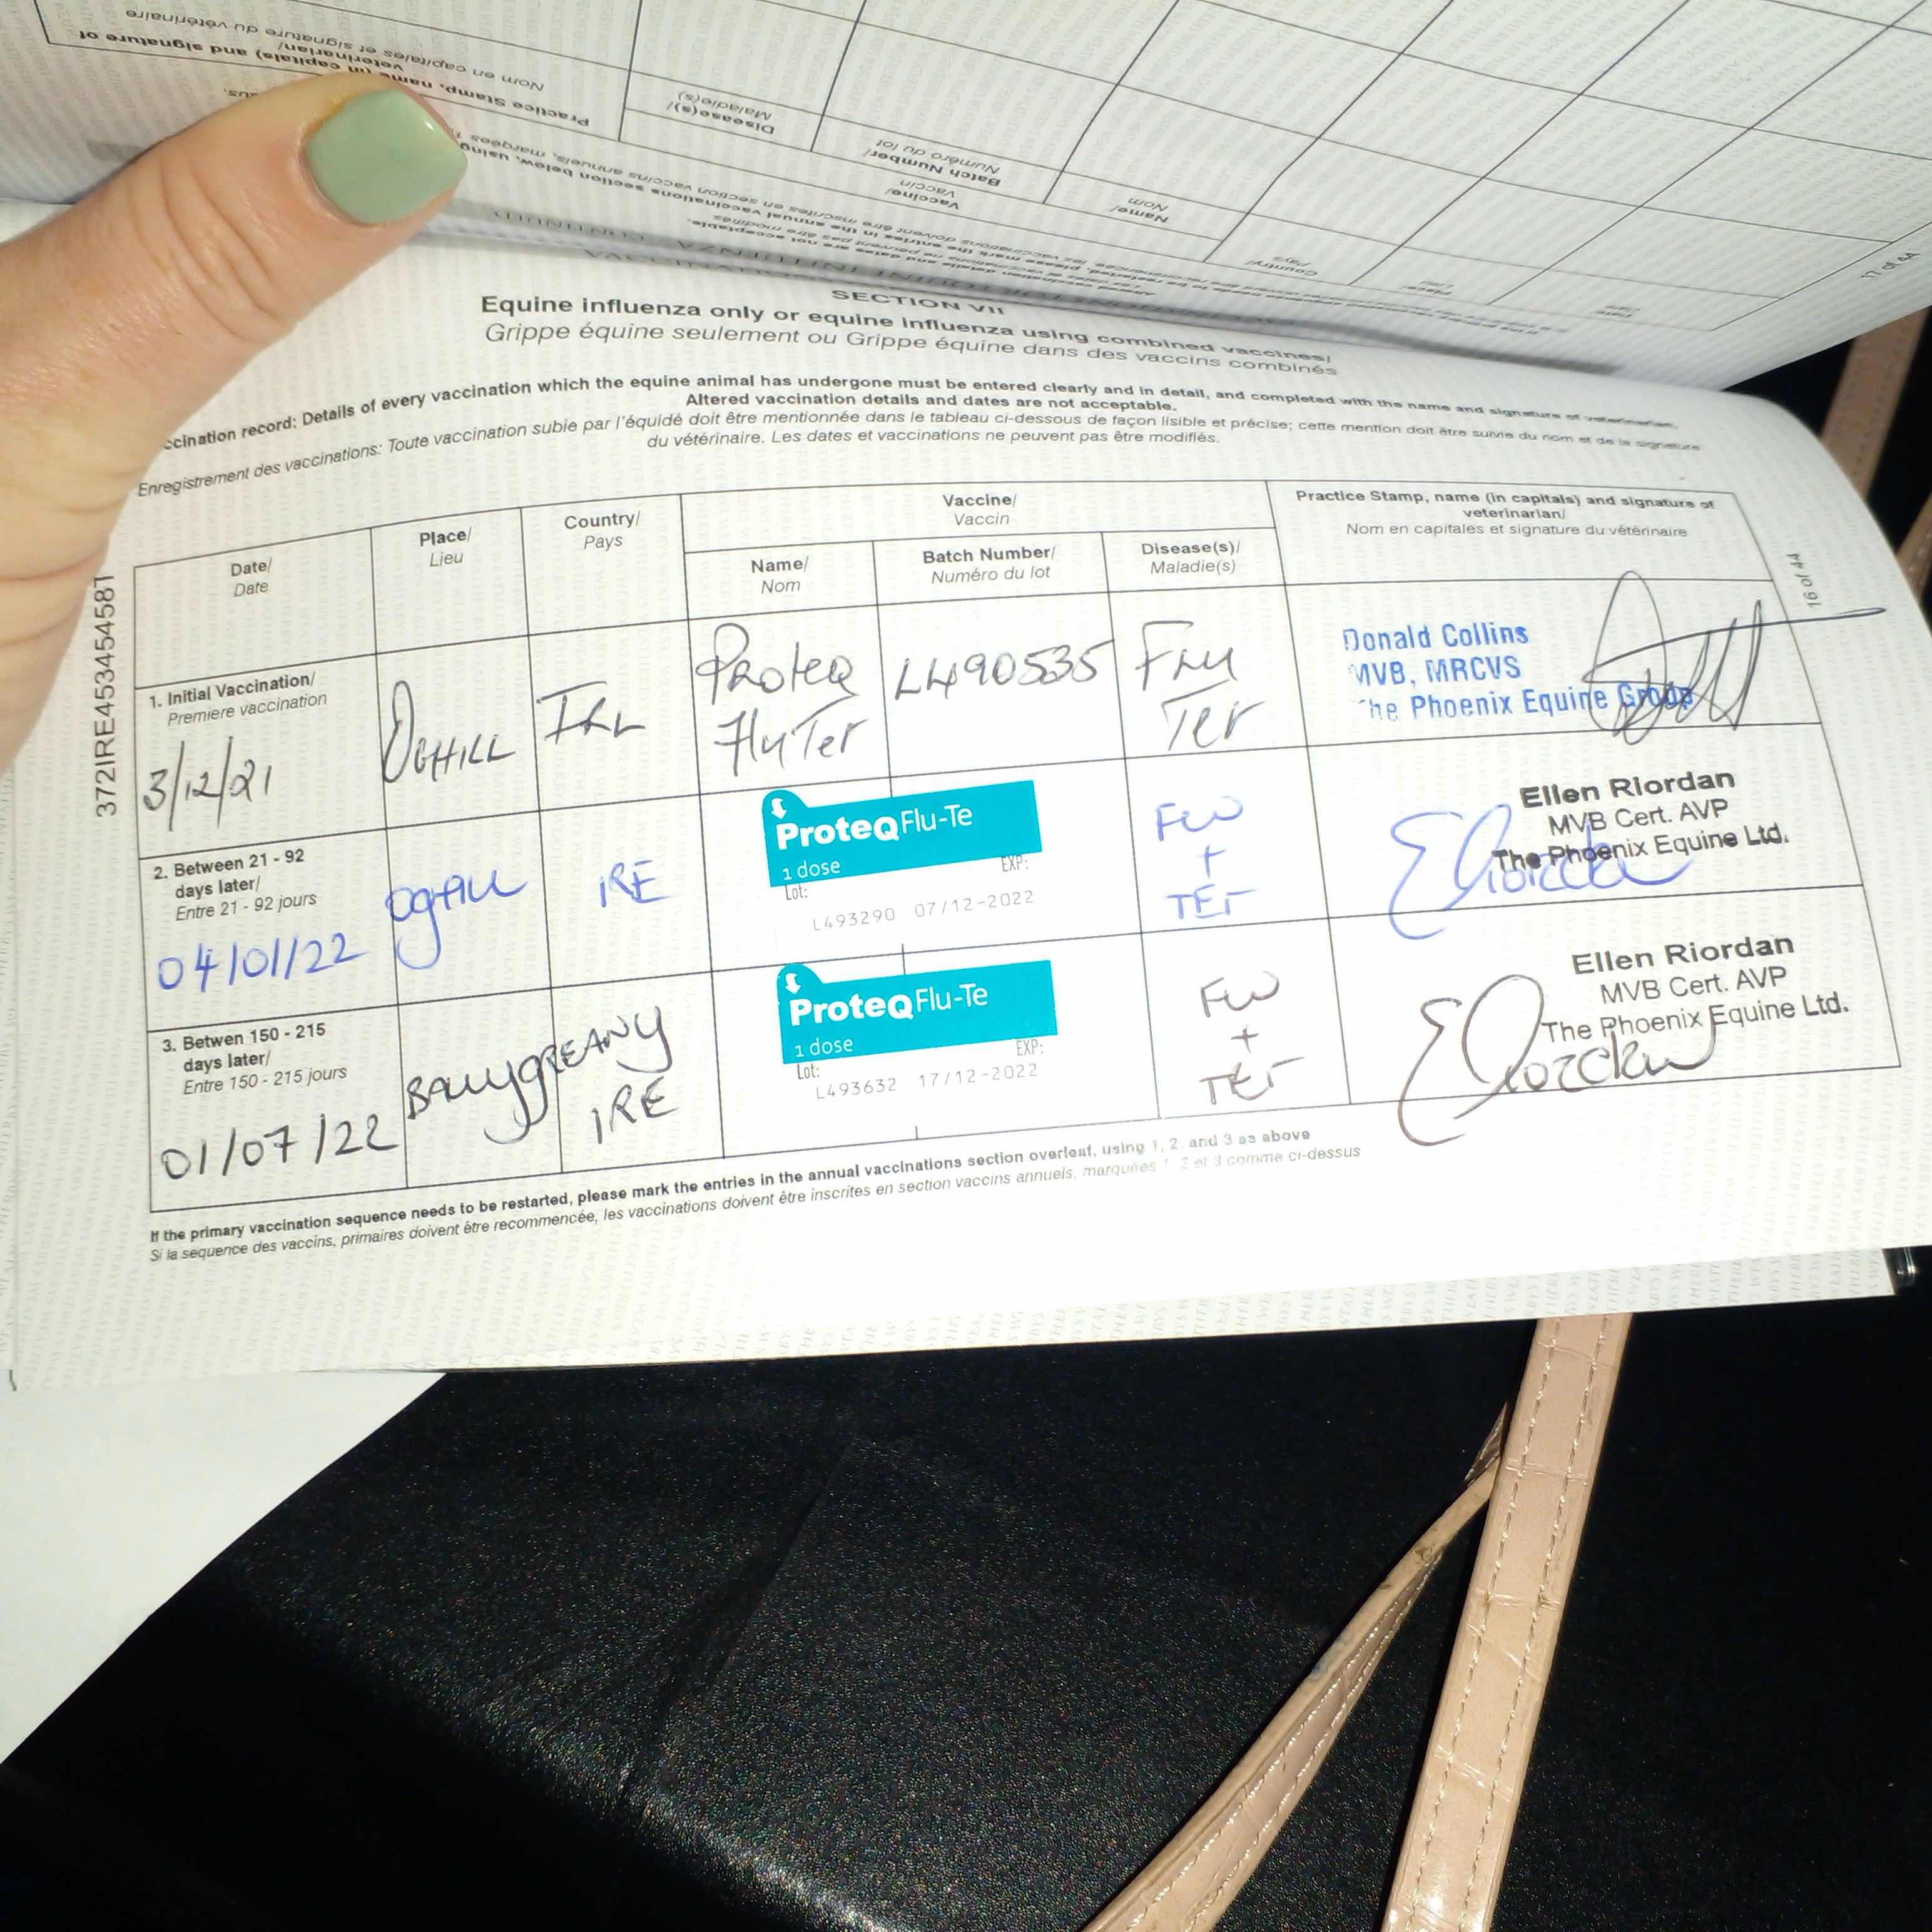 SECTION VII
Equine influenza only or equine influenza using combined vaccines/
Grippe équine seulement ou Grippe équine dans des vaccins combinés
ccination record: Details of every vaccination which the equine animal has undergone must be entered clearly and in detail, and completed with the name and signature of veterinarian.
Altered vaccination details and dates are not acceptable.
Enregistrement des vaccinations: Toute vaccination subie par l'équidé doit être mentionnée dans le tableau ci-dessous de façon lisible et précise; cette mention doit être suivie du nom et de la signature
du vétérinaire. Les dates et vaccinations ne peuvent pas être modifiés.
372IRE45345458T
16 of 44
Date/
Date
Place/
Lieu
Country/
Pays
Vaccine/
Vaccin
Name/
Nom
Batch Number/
Numéro du lot
Disease(s)/
Maladie(s)
Practice Stamp, name (in capitals) and signature of
veterinarian/
Nom en capitales et signature du vétérinaire
1. Initial Vaccination/
Premiere vaccination
3/12/21
OGHILL
IRL
Proteq
FluTer
L490535
Flu
Ter
Donald Collins
MVB, MRCVS
he Phoenix Equine Group
2. Between 21 - 92
days later/
Entre 21 - 92 jours
04/01/22
OgHill
IRE
ProteqFlu-Te
1 dose
EXP:
Lot:
L493290 07/12-2022
FLU
+
TET
Ellen Riordan
MVB Cert. AVP
The Phoenix Equine Ltd.
3. Betwen 150 - 215
days later/
Entre 150 - 215 jours
01/07/22
BallygREANY
IRE
ProteqFlu-Te
1 dose
EXP:
Lot:
L493632 17/12-2022
FLU
+
TET
Ellen Riordan
MVB Cert. AVP
The Phoenix Equine Ltd.
If the primary vaccination sequence needs to be restarted, please mark the entries in the annual vaccinations section overleaf, using 1, 2, and 3 as above
Si la sequence des vaccins, primaires doivent être recommencée, les vaccinations doivent être inscrites en section vaccins annuels, marquées 1, 2 et 3 comme ci-dessus
17 of 44
Name/
Nom
Vaccine/
Vaccin
Batch Number/
Numéro du lot
Disease(s)/
Maladie(s)
Country/
Pays